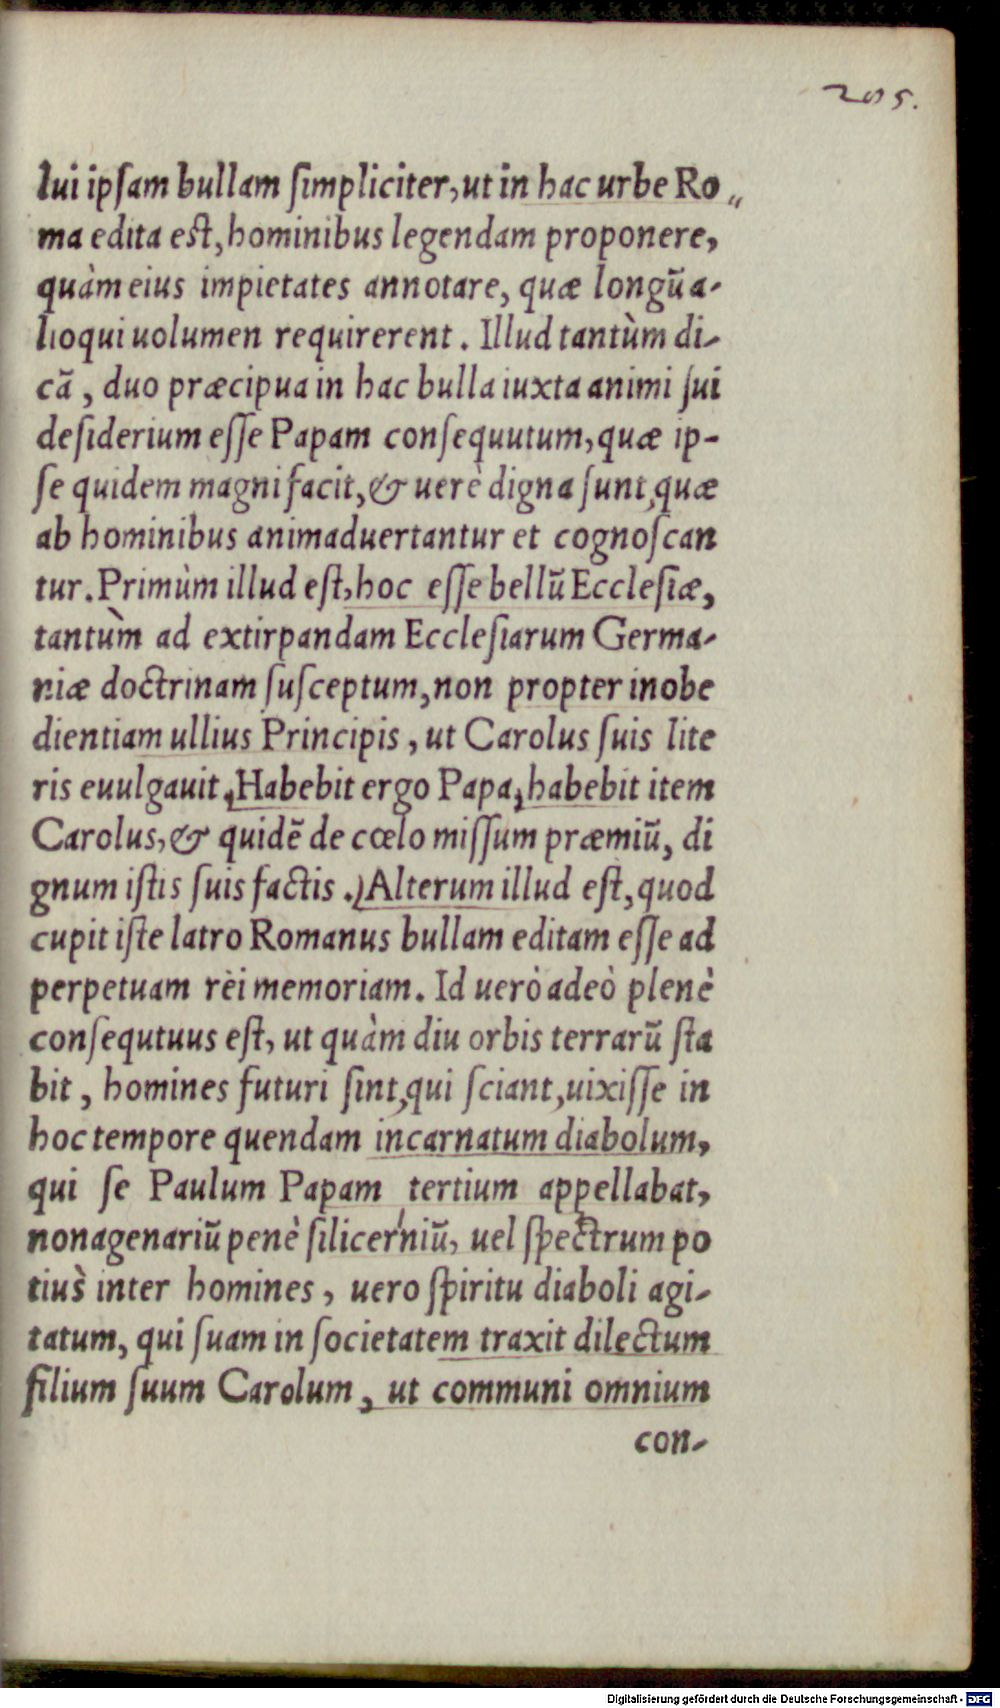 205.
lui ipſam bullam ſimpliciter, ut in hac urbe Ro„
ma edita eſt, hominibus legendam proponere,
quàm eius impietates annotare, quæ longũ a-
lioqui uolumen requirerent. Illud tantùm di-
cã, duo præcipua in hac bulla iuxta animi ſui
deſiderium eſſe Papam conſequutum, quæ ip-
ſe quidem magni facit, & uerè digna ſunt, quæ
ab hominibus animaduertantur et cognoſcan
tur. Primùm illud eſt, hoc eſſe bellũ Eccleſiæ,
tantùm ad extirpandam Eccleſiarum Germa-
niæ doctrinam ſuſceptum, non propter inobe
dientiam ullius Principis, ut Carolus ſuis lite
ris euulgauit. Habebit ergo Papa, habebit item
Carolus, & quidẽ de cœlo miſſum præmiũ, di
gnum iſtis ſuis factis. Alterum illud eſt, quod
cupit iſte latro Romanus bullam editam eſſe ad
perpetuam rèi memoriam. Id uerò adeò plenè
conſequtuus eſt, ut quàm diu orbis terrarũ ſta
bit, homines futuri ſint, qui ſciant, uixiſſe in
hoc tempore quendam incarnatum diabolum,
qui ſe Paulum Papam tertium appellabat,
nonagenariũ penè ſilicerniũ, uel ſpectrum po
tius̀ inter homines, uero ſpiritu diaboli agi-
tatum, qui ſuam in ſocietatem traxit dilectum
filium ſuum Carolum, ut communi omnium
con-
Digitalisierung gefördert durch die Deutsche Forschungsgemeinschaft - DFG